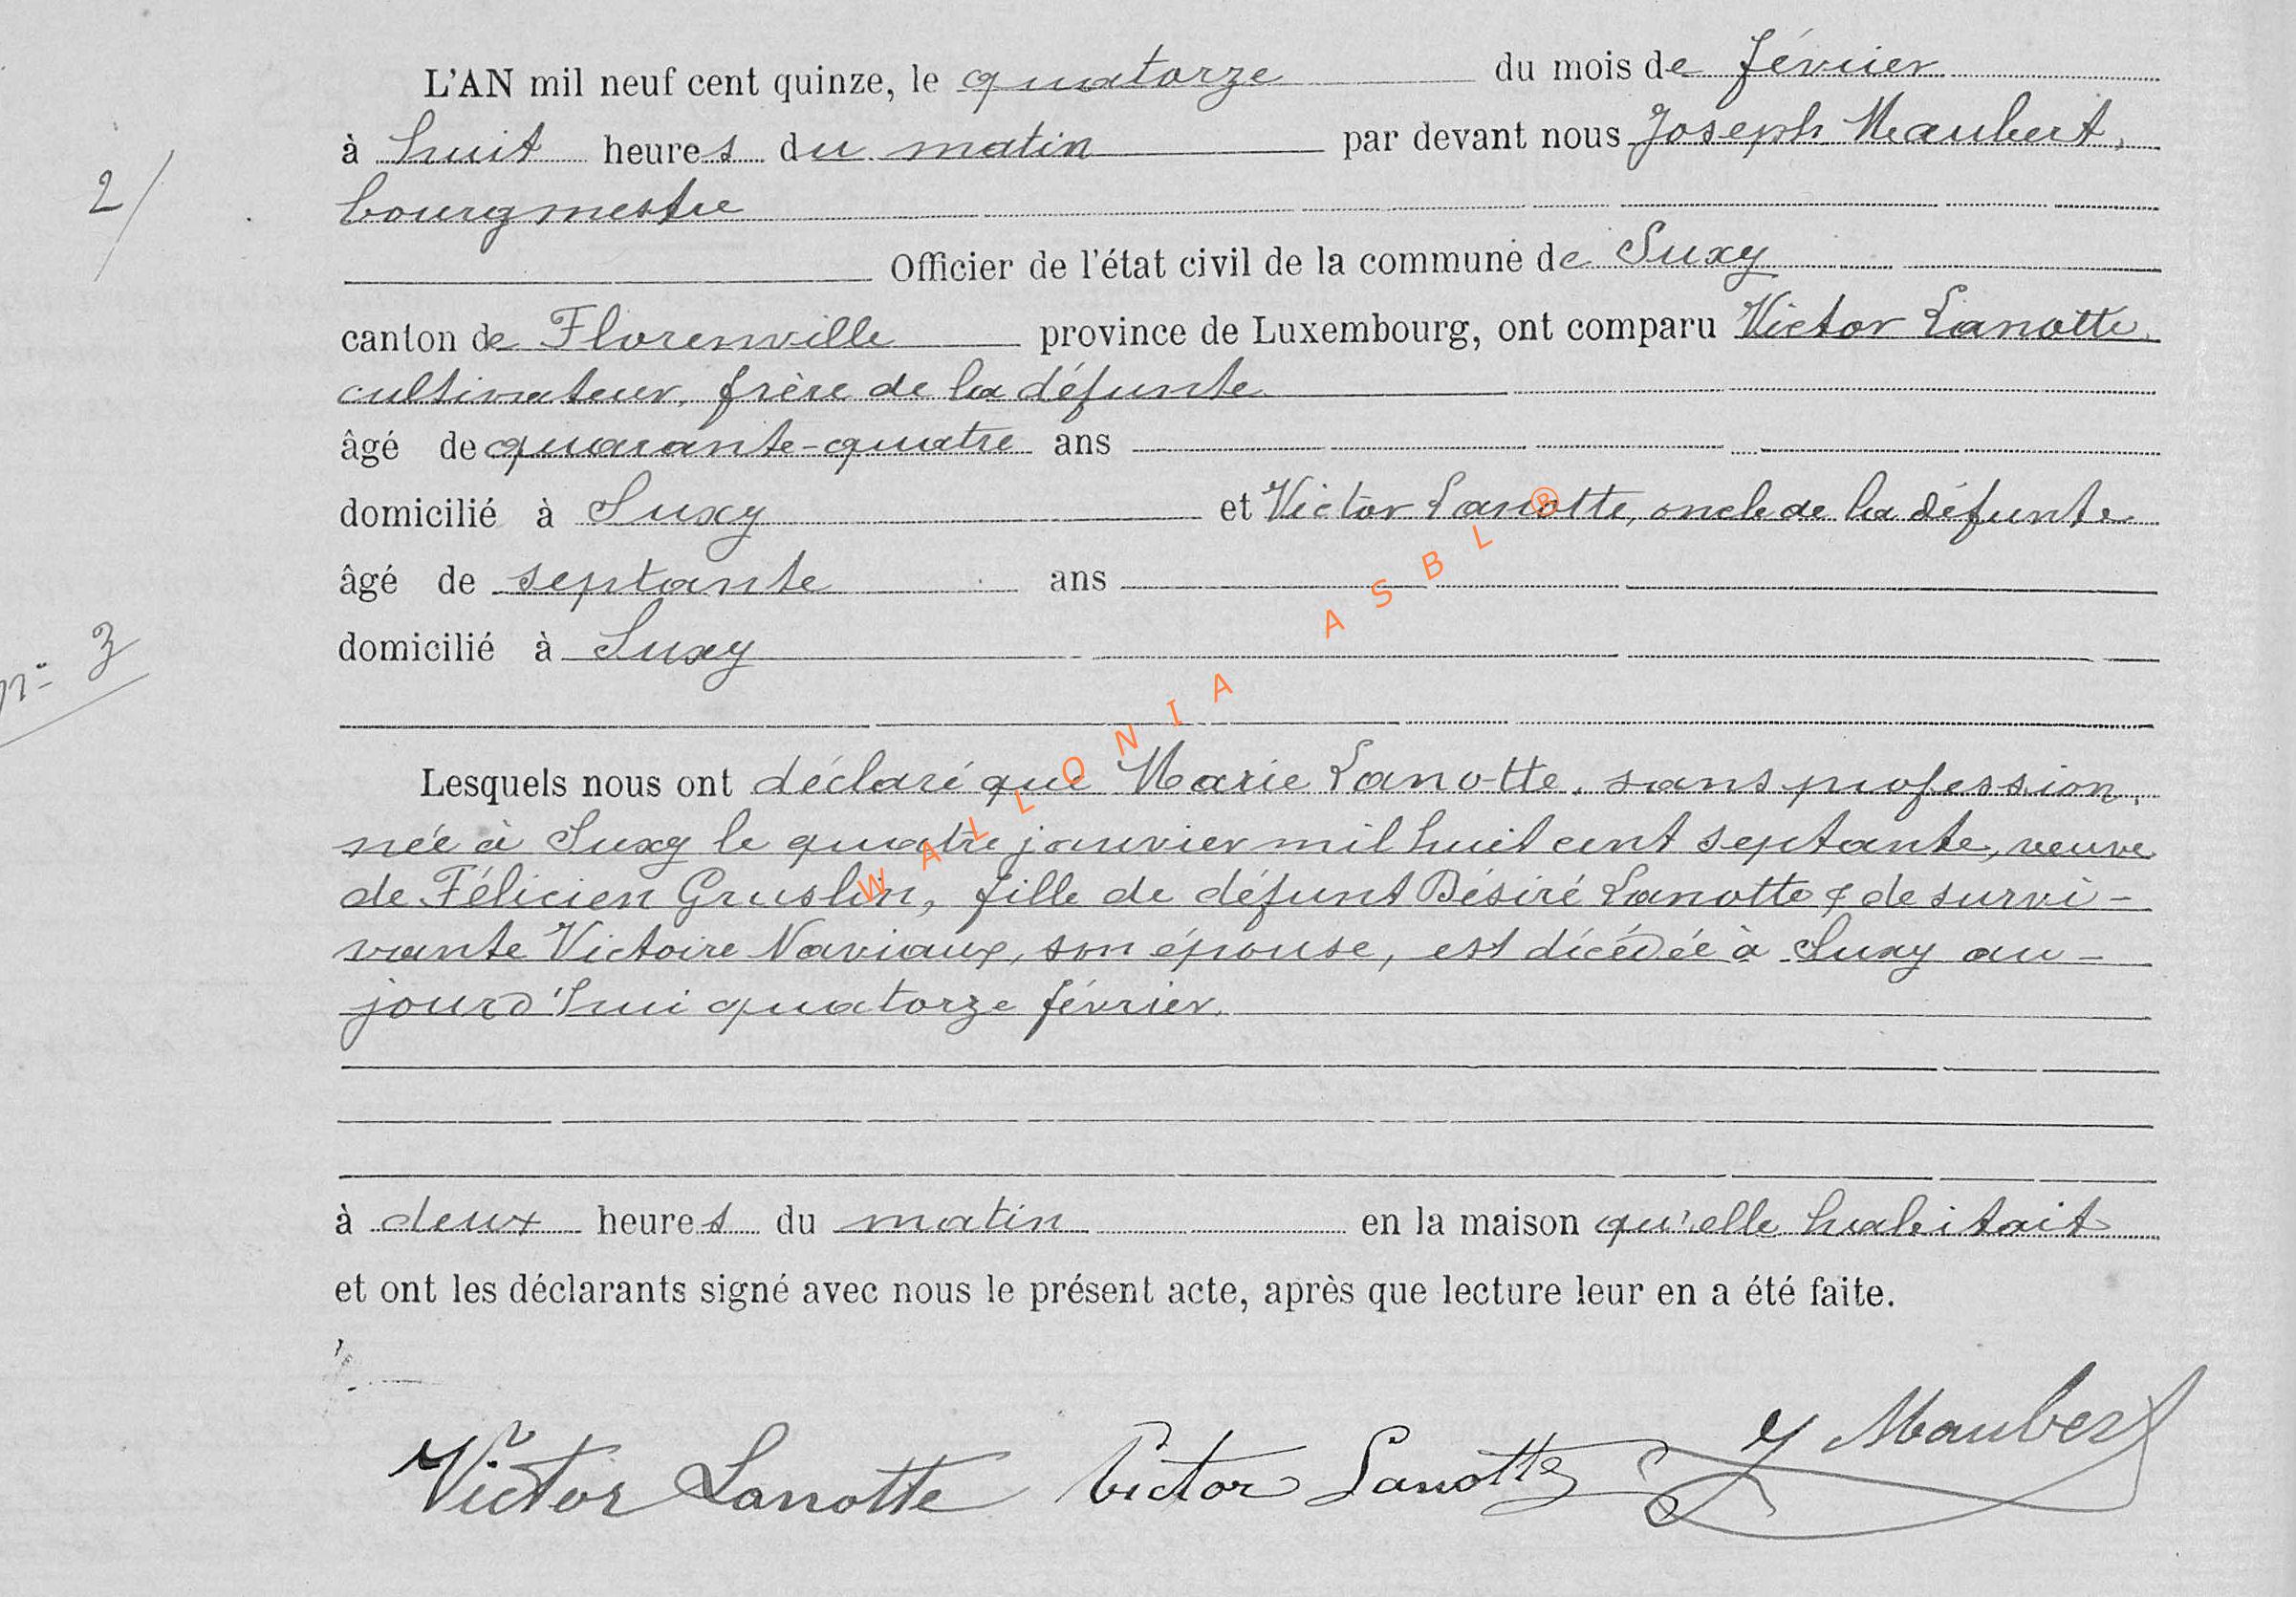 L'AN mil neuf cent quinze, le quatorze du mois de février
à huit heures du matin par devant nous Joseph Maubert,
2/
bourgmestre
Officier de l'état civil de la commune de Suxy
canton de Florenville province de Luxembourg, ont comparu Victor Lanotte,
cultivateur, frère de la défunte
âgé de quarante-quatre ans
domicilié à Suxy et Victor Lanotte, oncle de la défunte
âgé de septante ans
domicilié à Suxy
n° 3
Lesquels nous ont déclaré que Marie Lanotte, sans profession,
née à Suxy le quatre janvier mil huit cent septante, veuve
de Félicien Gruslin, fille de défunt Désiré Lanotte & de survi-
vante Victoire Naviaux, son épouse, est décédée à Suxy au-
jourd'hui quatorze février.
à deux heures du matin en la maison qu'elle habitait
et ont les déclarants signé avec nous le présent acte, après que lecture leur en a été faite.
Victor Lanotte Victor Lanotte J Maubert
WALLONIA ASBL ®